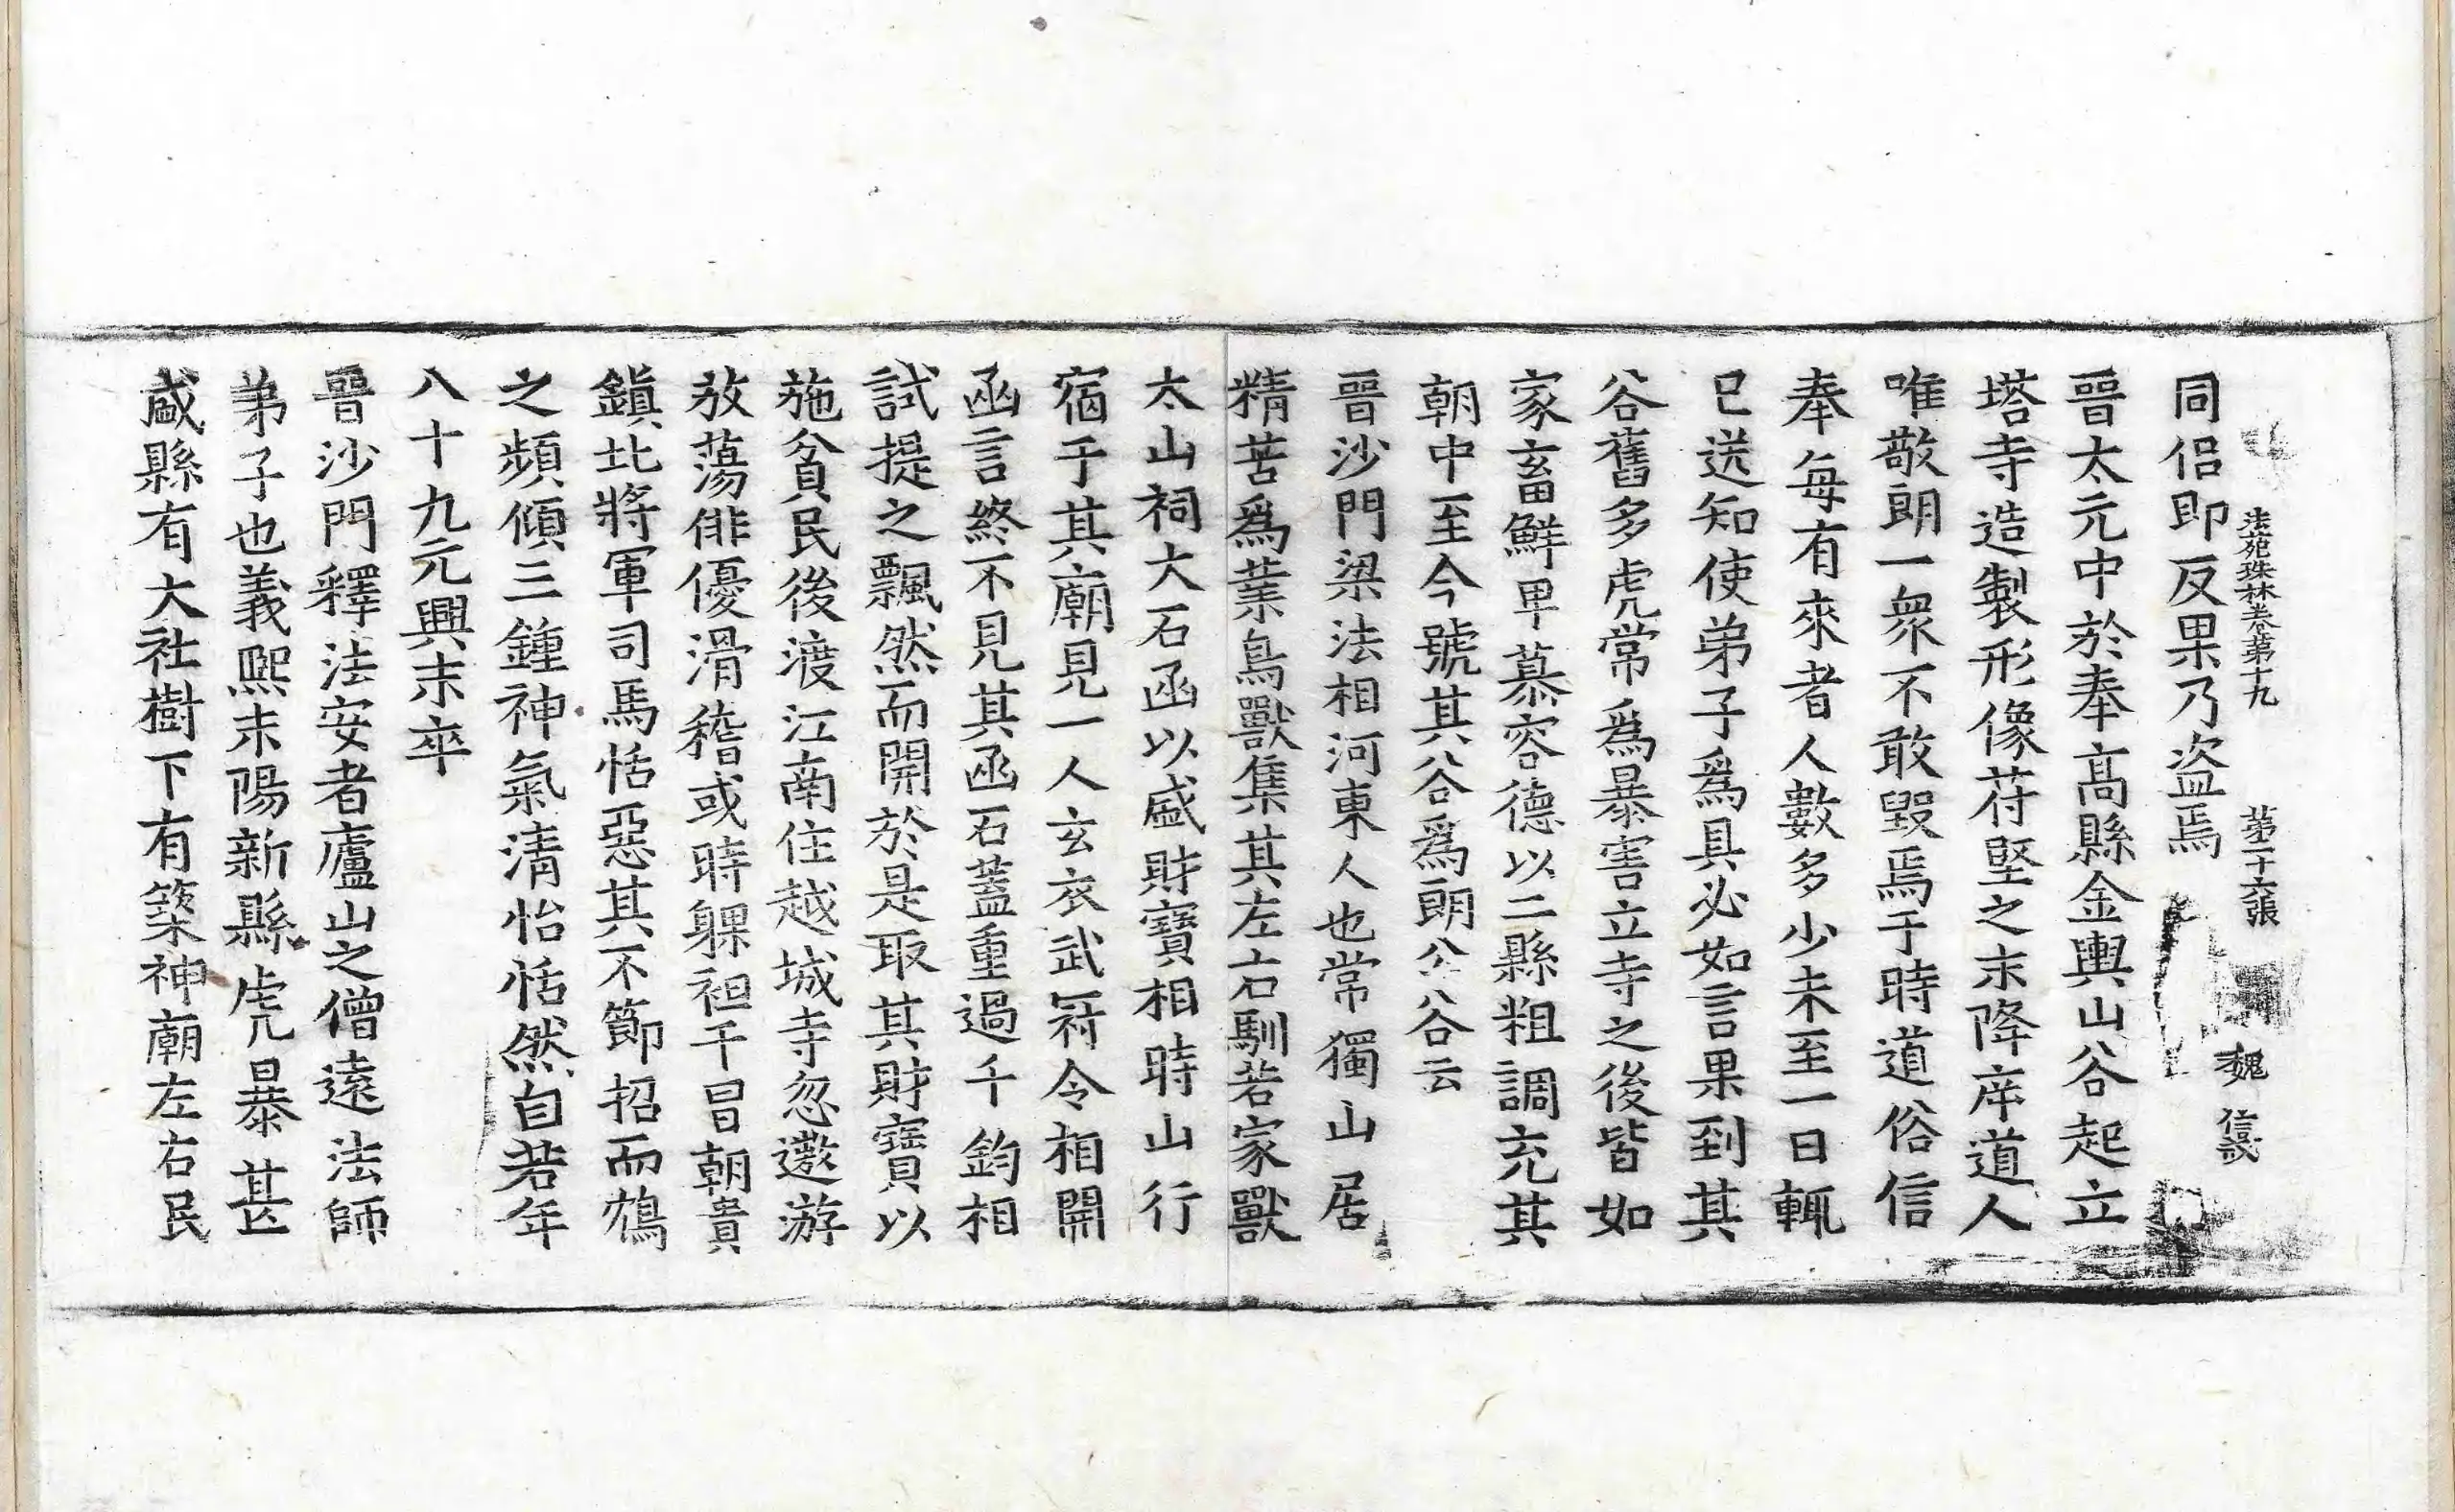 法苑珠林卷第十九 第二十六張 魏 信
同侶即反果乃盜焉
晉太元中於奉髙縣金輿山谷起立
塔寺造製形像苻堅之末降庠道人
唯敬朗一衆不敢毀焉于時道俗信
奉每有來者人數多少未至一日輒
已送知使弟子爲具必如言果到其
谷舊多虎常爲暴害立寺之後皆如
家畜鮮卑慕容德以二縣粗調充其
朝中至今號其谷爲朗公谷云
晉沙門梁法相河東人也常獨山居
精苦爲業鳥獸集其左右馴若家獸
太山祠大石函以盛財寶相時山行
宿于其廟見一人玄衣武冠令相開
函言終不見其函石蓋重過千鈞相
試提之飄然而開於是取其財寶以
施貧民後渡江南住越城寺忽遨游
放蕩俳優滑稽或時躶袒干冒朝貴
鎮北將軍司馬恬惡其不節招而鴆
之頻傾三鍾神氣清怡恬然自若年
八十九元興末卒
晉沙門釋法安者廬山之僧遠法師
弟子也義熙末陽新縣虎暴甚
盛縣有大社樹下有築神廟左右民